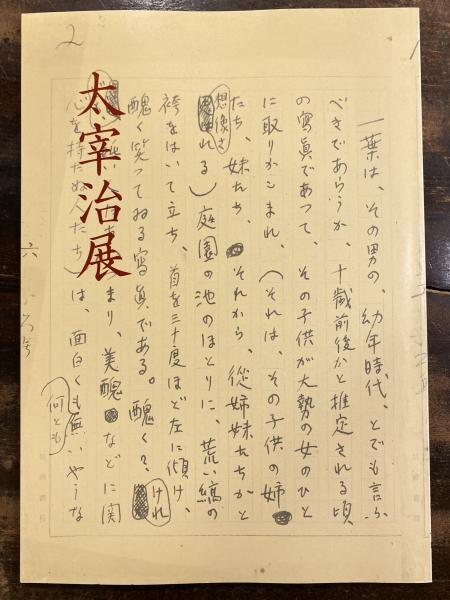 太宰治展
2
一葉は、その男の、幼年時代、とでも言ふ
べきであらうか、十歳前後かと推定される頃
の寫眞であつて、その子供が大勢の女のひと
に取りかこまれ、（それは、その子供の姉
たち、妹たち、それから、從姉妹たちかと
想像される）庭園の池のほとりに、荒い縞の
袴をはいて立ち、首を三十度ほど左に傾け、
醜く笑つてゐる寫眞である。醜く？けれ
まり、美醜などに関
心を持たぬ人たち）は、面白くも何とも無いやうな